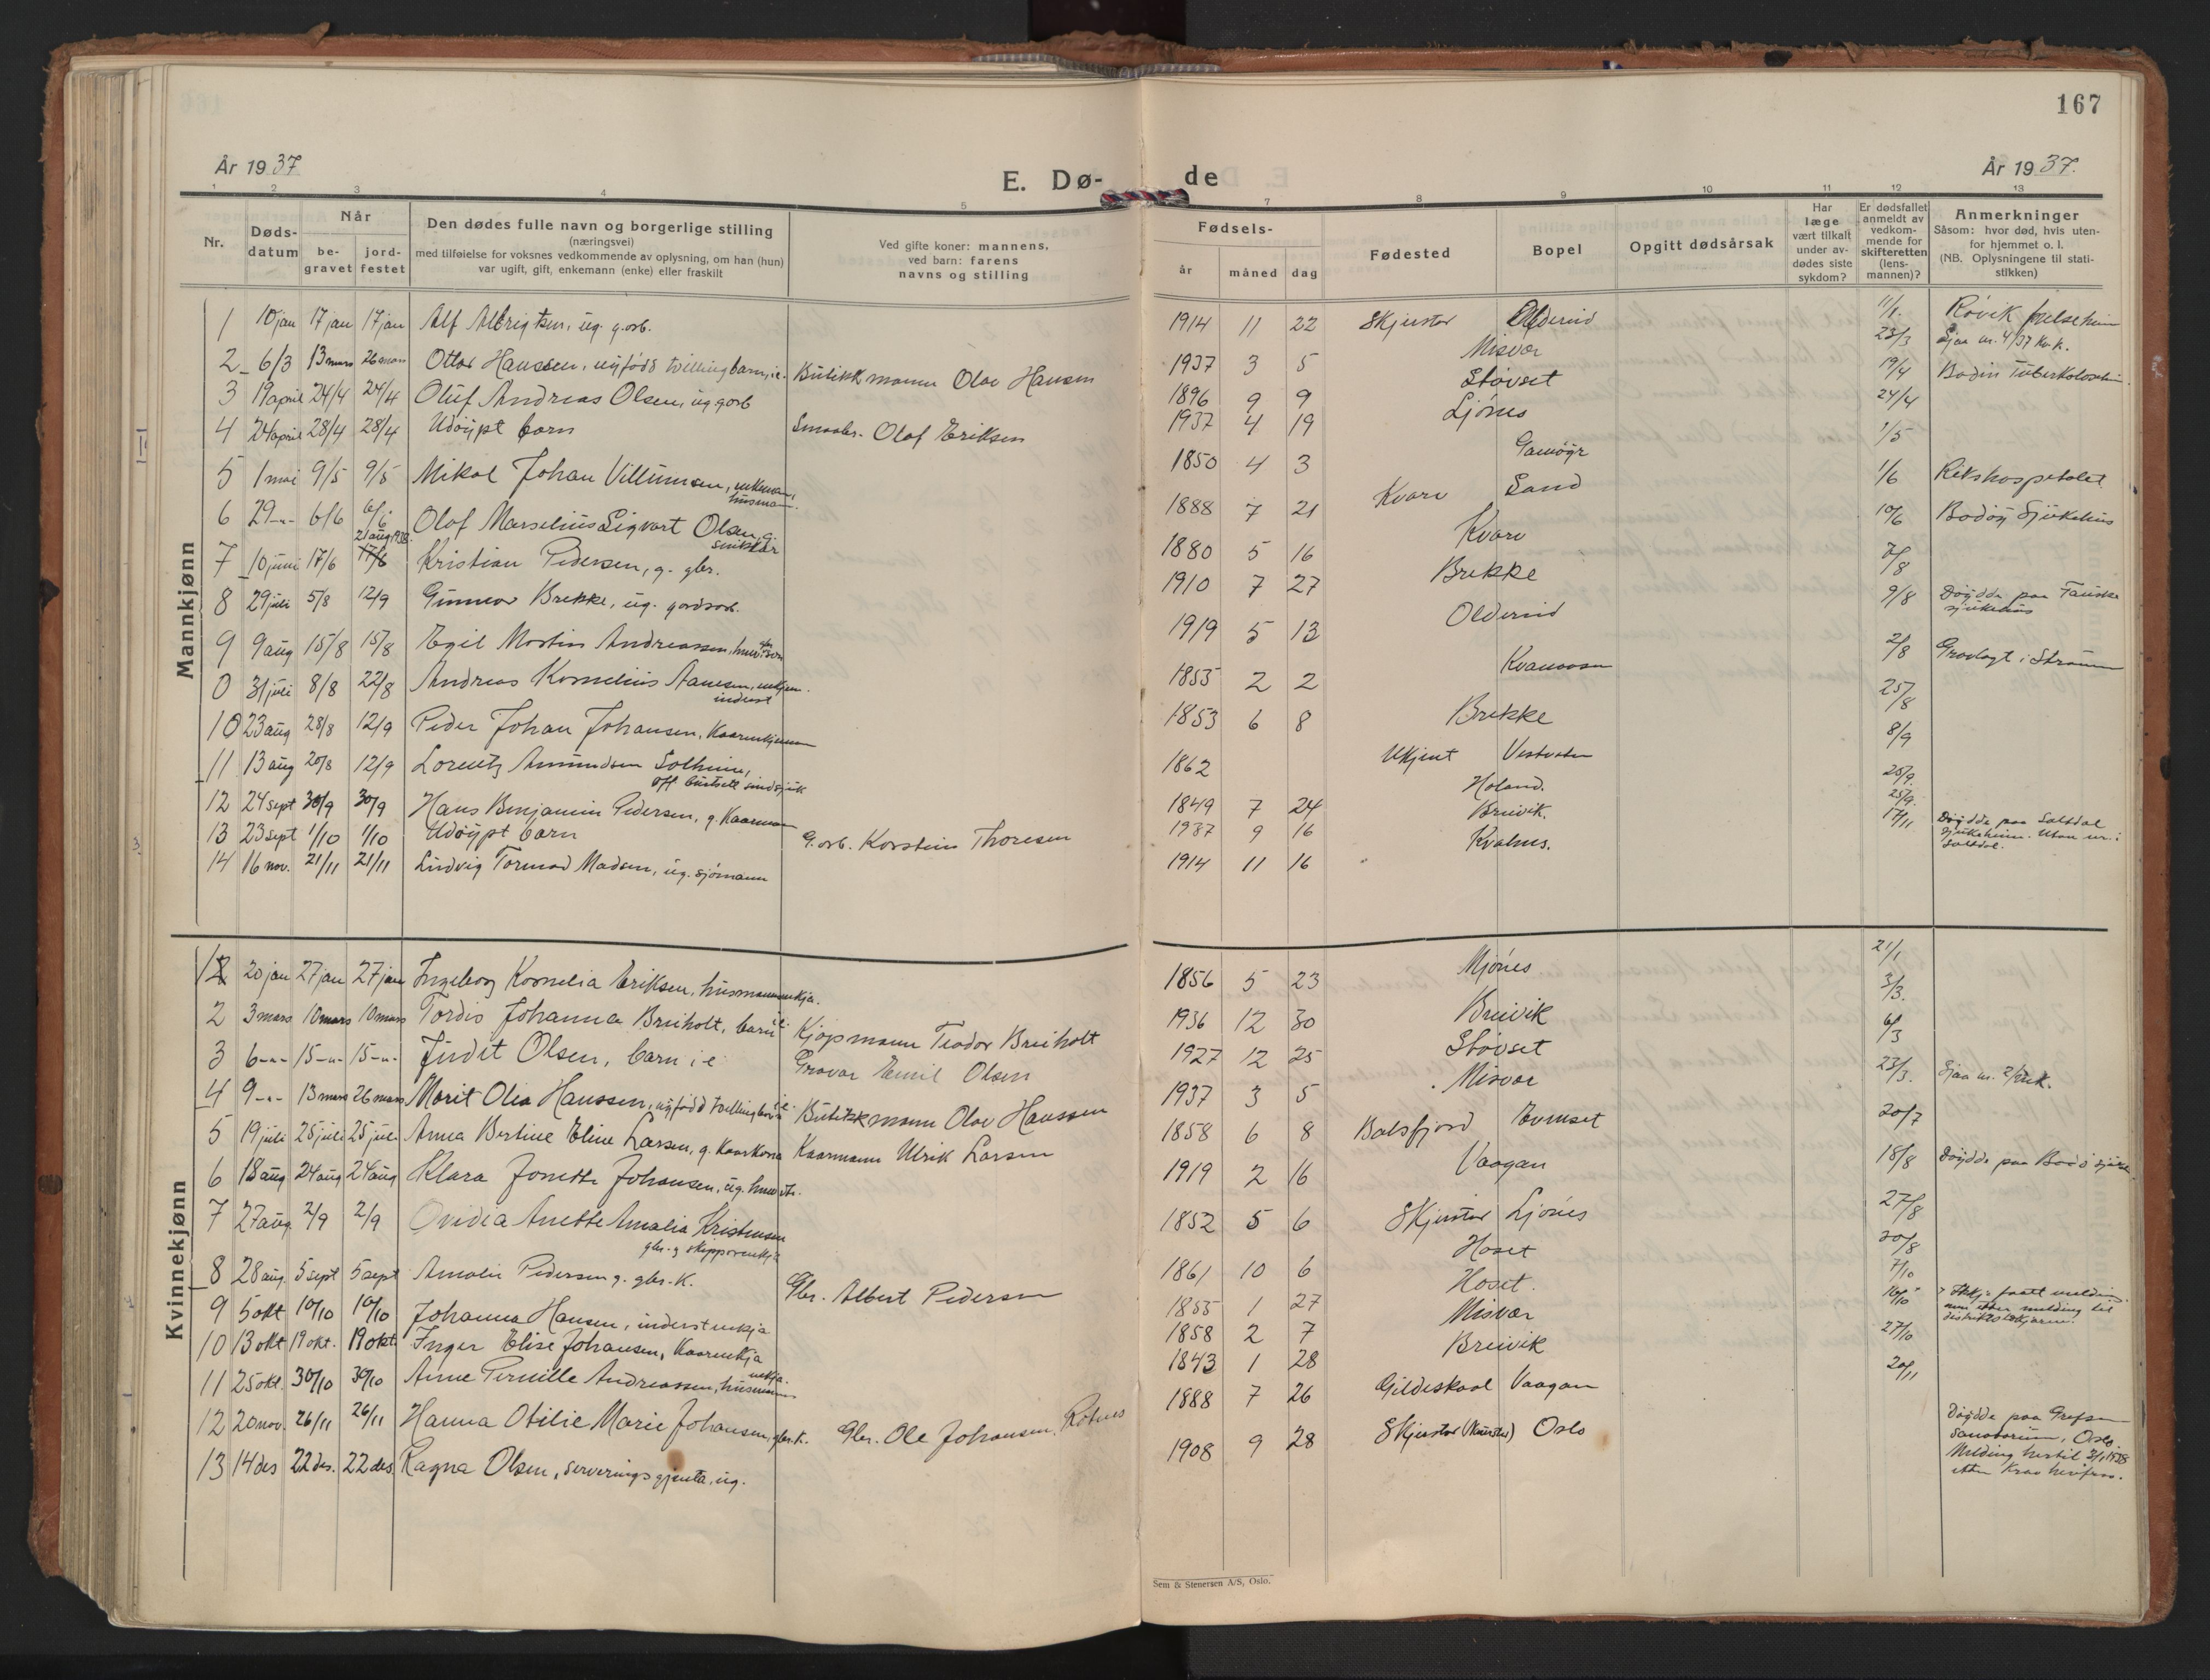 167
År 1937
E. Dø-
de
År 1937.
1 2 3 4 5 7 8 9 10 11 12 13
Nr.
Døds-
datum
Når
be-
gravet
jord-
festet
Den dødes fulle navn og borgerlige stilling
(næringsvei)
med tilføielse for voksnes vedkommende av oplysning, om han (hun)
var ugift, gift, enkemann (enke) eller fraskilt
Ved gifte koner: mannens,
ved barn: farens
navns og stilling
Fødsels-
år
måned
dag
Fødested
Bopel
Opgitt dødsårsak
Har
læge
vært tilkalt
under av-
dødes siste
sykdom?
Er dødsfallet
anmeldt av
vedkom-
mende for
skifteretten
(lens-
mannen)?
Anmerkninger
Såsom: hvor død, hvis uten-
for hjemmet o. l.
(NB. Oplysningene til stati-
stikken)
Mannkjønn
1 10 jan 17 jan 17 jan Alf Albrigtsen, ug. g.arb. 1914 11 22 Skjerstad Oldereid 11/1. Røvik
2 6/3 13 mars 26 mars Ottar Hanssen, nyfødd tvillingbarn, i.e. Butikkmann Olav Hansen 1937 3 5 Misvær 23/3 Sjaa nr. 4/37 kv.k.
3 19 april 24/4 24/4 Oluf Andreas Olsen, ug. g.arb 1896 9 9 Støvset 19/4 Bodin
4 24 april 28/4 28/4 Udøypt barn Smaabr. Olaf Eriksen 1937 4 19 Ljønes 24/4
5 1 mai 9/5 9/5 Mikal Johan Villumsen, enkemann, husmann. 1850 4 3 1/5
6 29-"- 6/6 6/6 Olaf Marselius Sigvart Olsen, g. snikkar 1888 7 21 Kvarv Sand 1/6 Rikshospitalet
7 10 juni 17/6 17/6 21 aug 1938 Kristian Pedersen, g. gbr. 1880 5 16 Kvarv 10/6 Bodøy Sjukehus
8 29 juli 5/8 12/9 Gunnar Brekke, ug. gardsarb. 1910 7 27 Brekke 7/8
9 9 aug 15/8 15/8 Egil Martin Andreassen, 1919 5 13 Oldereid 9/8 Døydde paa Fauske sjukehus
0 31 juli 8/8 22/8 Andreas Kornelius Aanesen, enkjem. inderst 1855 2 2 2/8 Gravlagt i Straum
10 23 aug 28/8 12/9 Peder Johan Johansen, Kaarenkjemann 1853 6 8 Brekke 25/8
11 13 aug 20/8 12/9 Lorentz Amundsen Solheim, off. bustell sindsjuk 1862 Ukjent Vestvatn 8/9
12 24 sept 30/9 30/9 Hans Benjamin Pedersen, g. Kaarmann 1849 7 24 Holand. 25/9.
13 23 sept 1/10 1/10 Udøypt barn G.arb. Karstein Thoresen 1937 9 16 Breivik. 25/9.
14 16 nov. 21/11 21/11 Ludvig Tormod Madsen, ug. sjømann 1914 11 16 Kvalnes. 17/11 Døydde paa Saltdal sjukeheim. Utan nr. i Saltdal.
Kvinnekjønn
1 20 jan 27 jan 27 jan Ingeborg Kornelia Eriksen, husmannsenkja. 1856 5 23 Mjønes 21/1
2 3 mars 10 mars 10 mars Tordis Johanna Breiholt, barn i.e. Kjøpmann Teodor Breiholt 1936 12 30 Breivik 3/3.
3 6-"- 15-"- 15-"- Judit Olsen, barn i.e Gravar Emil Olsen 1927 12 25 Støvset 6/3
4 9-"- 13 mars 26 mars Marit Olea Hanssen, nyfødd tvillingbarn i.e. Butikkmann Olav Hanssen 1937 3 5 Misvær 23/3. Sjaa nr. 2/
5 19 juli 25 juli 25 juli Anna Bertine Eline Larsen, g. Kaarkona Kaarmann Ulrik Larsen 1858 6 8 Balsfjord Evenset 20/7
6 18 aug 24 aug 24 aug Klara Jonette Johansen, ug. 1919 2 16 Vaagan 18/8 Døydde paa Bodø
7 27 aug 2/9 2/9 Ovidia Anette Amalia Kristensen gbr. og skipparenkja 1852 5 6 Skjerstad Ljønes 27/8
8 28 aug. 5 sept 5 sept Amalie Pedersen g. gbr.-K. Gbr. Albert Pedersen 1861 10 6 Hoset 30/8
9 5 okt 10/10 10/10 Johanna Hansen, inderstenkja 1855 1 27 Hoset. 7/10
10 13 okt 19 okt. 19 okt. Inger Elise Johansen, Kaarenkja 1858 2 7 Misvær
11 25 okt. 30/10 30/10 Anne Pernille Andreassen, husmannsenkja. 1843 1 28 Breivik 27/10
12 20 nov. 26/11 26/11 Hanna Otilie Marie Johansen, gbr. K. Gbr. Ole Johansen, 1888 7 26 Gildeskaal Vaagan 20/11
13 14 des 22 des. 22 des. Ragna Olsen, serveringsgjenta, ug. 1908 9 28 Skjerstad Oslo Døydde paa Grefsen Sanatorium, Oslo. Melding hertil 3/1 1938
Sem & Stenersen A/S, Oslo.